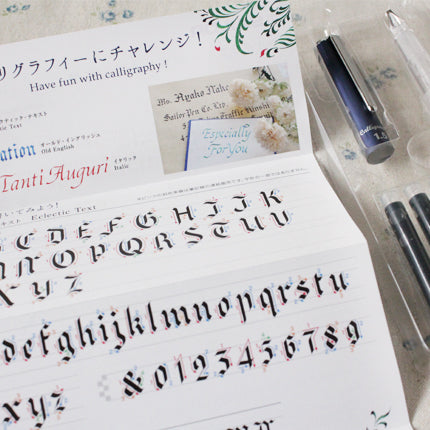 リグラフィーにチャレンジ！
Have fun with calligraphy !
ティック・テキスト
tic Text
ation オールド・イングリッシュ
Old English
Tanti Auguri イタリック
Italic
Ms. Ayako Nake
Sailor Pen Co. Ltd
Especially
For You
いてみよう！
キスト Eclectic Text
C D E F G H I J K
N O P Q R S T U U
X Y Z
d e f g h i j k l m n o p q r s t u
x y z & 0 1 2 3 4 5 6 7 8 9
1.5